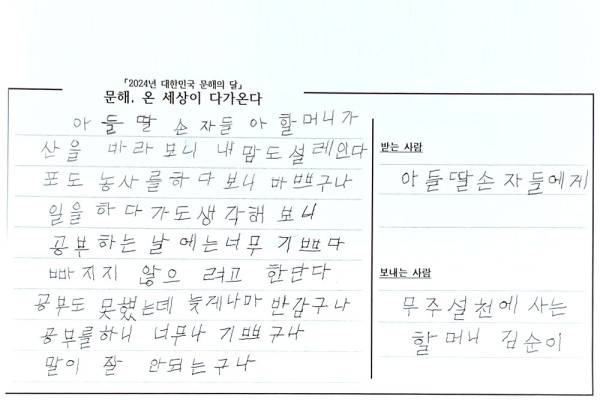 「2024년 대한민국 문해의 달」
문해, 온 세상이 다가온다
아들 딸 손자들 아 할머니가
산을 바라보니 내맘도 설레인다
포도 농사를하다보니 바쁘구나
일을하다가도생각해 보니
공부하는날에는너무 기쁘다
빠지지 않으려고 한단다
공부도 못했는데 늦게나마 반갑구나
공부를하니 너무나 기쁘구나
말이 잘 안되는구나
받는 사람
아들딸손자들에게
보내는 사람
무주설천에 사는
할머니 김순이